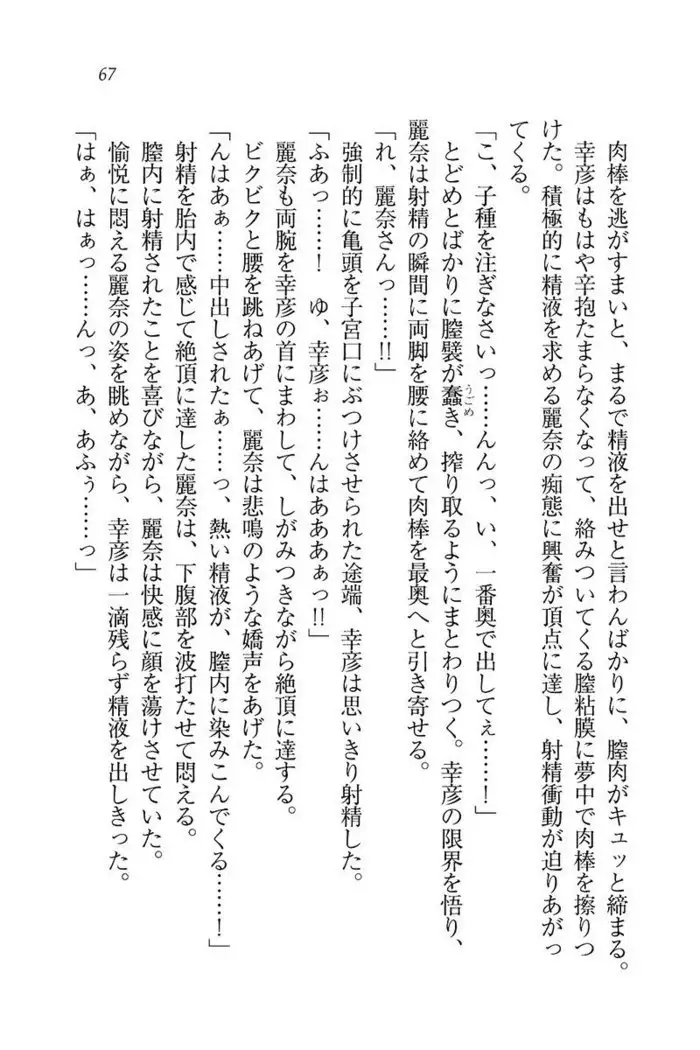 67
肉棒を逃がすまいと、まるで精液を出せと言わんばかりに、膣肉がキュッと締まる。
幸彦はもはや辛抱たまらなくなって、絡みついてくる膣粘膜に夢中で肉棒を擦りつ
けた。積極的に精液を求める麗奈の痴態に興奮が頂点に達し、射精衝動が迫りあがっ
てくる。
「こ、子種を注ぎなさいっ……んんっ、い、一番奥で出してぇ……！」
とどめとばかりに膣襞が蠢き、搾り取るようにまとわりつく。幸彦の限界を悟り、
うごめ
麗奈は射精の瞬間に両脚を腰に絡めて肉棒を最奥へと引き寄せる。
「れ、麗奈さんっ……!!」
強制的に亀頭を子宮口にぶつけさせられた途端、幸彦は思いきり射精した。
「ふあっ……！　ゆ、幸彦ぉ……んはあああぁっ!!」
麗奈も両腕を幸彦の首にまわして、しがみつきながら絶頂に達する。
ビクビクと腰を跳ねあげて、麗奈は悲鳴のような嬌声をあげた。
「んはあぁ……中出しされたぁ……っ、熱い精液が、膣内に染みこんでくる……！」
射精を胎内で感じて絶頂に達した麗奈は、下腹部を波打たせて悶える。
膣内に射精されたことを喜びながら、麗奈は快感に顔を蕩けさせていた。
愉悦に悶える麗奈の姿を眺めながら、幸彦は一滴残らず精液を出しきった。
「はぁ、はぁっ……んっ、あ、あふぅ……っ」